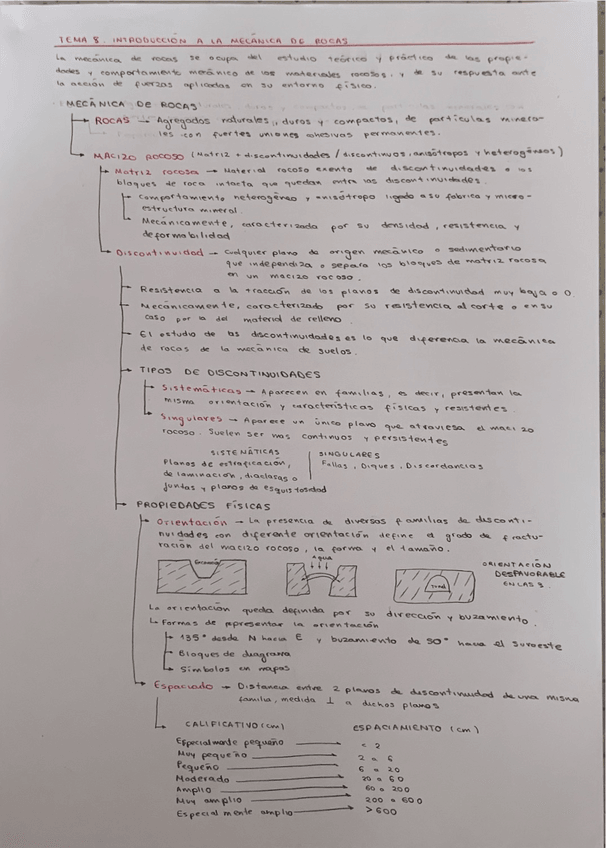 TEMA 8. INTRODUCCIÓN A LA MECÁNICA DE ROCAS
La mecánica de rocas se ocupa del estudio teórico y práctico de las propie-
dades y comportamiento mecánico de los materiales rocosos, y de su respuesta ante
la acción de fuerzas aplicadas en su entorno físico.
MECÁNICA DE ROCAS
ROCAS → Agregados naturales, duros y compactos, de partículas minera-
les con fuertes uniones cohesivas permanentes.
MACIZO ROCOSO (Matriz + discontinuidades / discontinuos, anisótropos y heterogéneos)
Matriz rocosa → Material rocoso exento de discontinuidades o los
bloques de roca intacta que quedan entre las discontinuidades.
Comportamiento heterogéneo y anisótropo ligado a su fabrica y micro-
estructura mineral.
Mecánicamente, caracterizada por su densidad, resistencia y
deformabilidad
Discontinuidad → Cualquier plano de origen mecánico o sedimentario
que independiza o separa los bloques de matriz rocosa
en un macizo rocoso.
Resistencia a la tracción de los planos de discontinuidad muy baja o 0
Mecánicamente, caracterizado por su resistencia al corte o en su
caso por la del material de relleno.
El estudio de las discontinuidades es lo que diferencia la mecánica
de rocas de la mecánica de suelos.
TIPOS DE DISCONTINUIDADES
Sistemáticas → Aparecen en familias, es decir, presentan la
misma orientación y características físicas y resistentes.
Singulares → Aparece un único plano que atraviesa el macizo
rocoso. Suelen ser mas continuos y persistentes
SISTEMÁTICAS | SINGULARES
Planos de estratificación, | Fallas, Diques, Discordancias
de laminación, diaclasas o
juntas y planos de esquistosidad
PROPIEDADES FÍSICAS
Orientación → La presencia de diversas familias de disconti-
nuidades con diferente orientación define el grado de fractu-
ración del macizo rocoso, la forma y el tamaño.
Agua
ORIENTACIÓN
DESFAVORABLE
EN LAS 3.
La orientación queda definida por su dirección y buzamiento.
Formas de representar la orientación
135° desde N hacia E y buzamiento de 50° hacia el Suroeste
Bloques de diagrama
Símbolos en mapas
Espaciado → Distancia entre 2 planos de discontinuidad de una misma
familia, medida ⊥ a dichos planos
CALIFICATIVO (cm) ESPACIAMIENTO (cm)
Especialmente pequeño → < 2
Muy pequeño → 2 a 6
Pequeño → 6 a 20
Moderado → 20 a 60
Amplio → 60 a 200
Muy amplio → 200 a 600
Especialmente amplio → >600